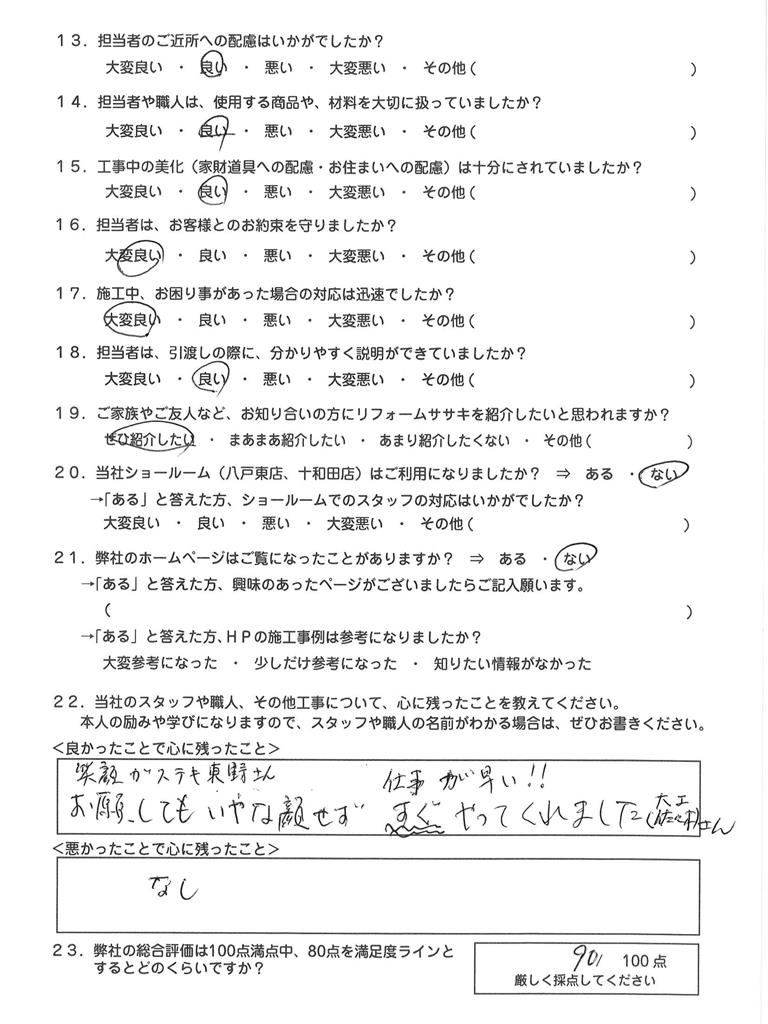 １３．担当者のご近所への配慮はいかがでしたか？
大変良い ・ 良い ・ 悪い ・ 大変悪い ・ その他（ ）
１４．担当者や職人は、使用する商品や、材料を大切に扱っていましたか？
大変良い ・ 良い ・ 悪い ・ 大変悪い ・ その他（ ）
１５．工事中の美化（家財道具への配慮・お住まいへの配慮）は十分にされていましたか？
大変良い ・ 良い ・ 悪い ・ 大変悪い ・ その他（ ）
１６．担当者は、お客様とのお約束を守りましたか？
大変良い ・ 良い ・ 悪い ・ 大変悪い ・ その他（ ）
１７．施工中、お困り事があった場合の対応は迅速でしたか？
大変良い ・ 良い ・ 悪い ・ 大変悪い ・ その他（ ）
１８．担当者は、引渡しの際に、分かりやすく説明ができていましたか？
大変良い ・ 良い ・ 悪い ・ 大変悪い ・ その他（ ）
１９．ご家族やご友人など、お知り合いの方にリフォームササキを紹介したいと思われますか？
ぜひ紹介したい ・ まあまあ紹介したい ・ あまり紹介したくない ・ その他（ ）
２０．当社ショールーム（八戸東店、十和田店）はご利用になりましたか？ ⇒ ある ・ ない
→「ある」と答えた方、ショールームでのスタッフの対応はいかがでしたか？
大変良い ・ 良い ・ 悪い ・ 大変悪い ・ その他（ ）
２１．弊社のホームページはご覧になったことがありますか？ ⇒ ある ・ ない
→「ある」と答えた方、興味のあったページがございましたらご記入願います。
（ ）
→「ある」と答えた方、ＨＰの施工事例は参考になりましたか？
大変参考になった ・ 少しだけ参考になった ・ 知りたい情報がなかった
２２．当社のスタッフや職人、その他工事について、心に残ったことを教えてください。
本人の励みや学びになりますので、スタッフや職人の名前がわかる場合は、ぜひお書きください。
＜良かったことで心に残ったこと＞
笑顔がステキ東野さん 仕事が早い!!
お願いしてもいやな顔せず すぐやってくれました（大工佐々木）さん
＜悪かったことで心に残ったこと＞
なし
２３．弊社の総合評価は100点満点中、80点を満足度ラインと
するとどのくらいですか？
90/ 100点
厳しく採点してください